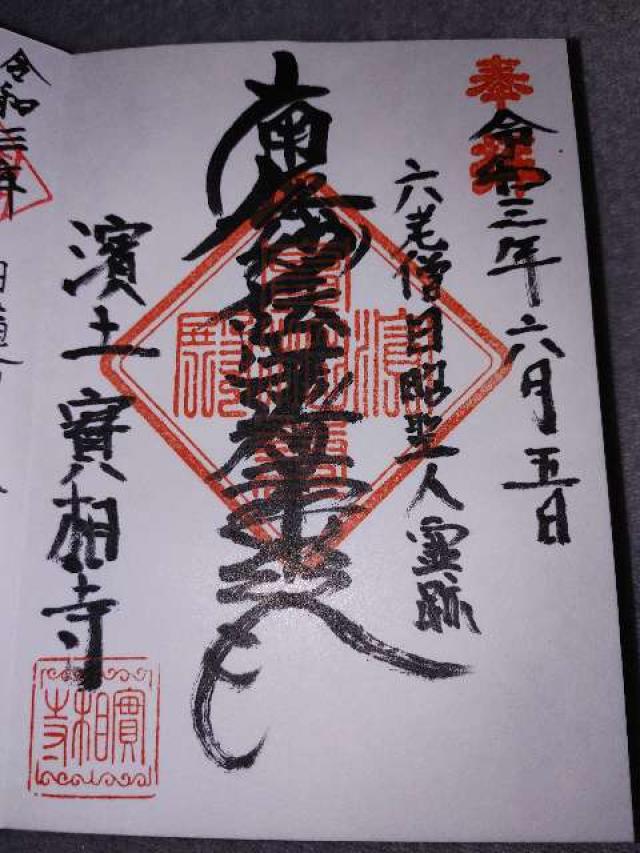 奉拝
令和三年六月五日
六老僧日昭聖人霊跡
南無妙法蓮華経
濱土實相寺
實相寺
令和三年